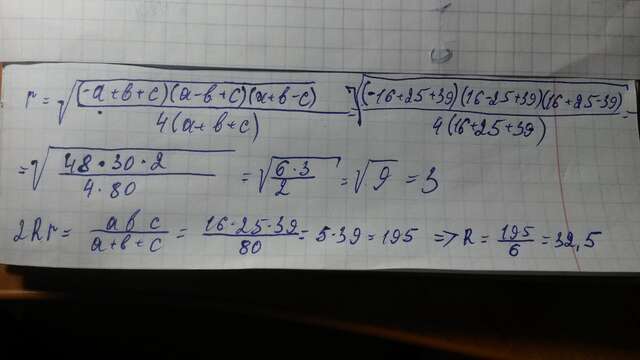 r = √((-a+b+c)(a-b+c)(a+b-c) / 4(a+b+c)) = √((-16+25+39)(16-25+39)(16+25-39) / 4(16+25+39)) =
= √(48·30·2 / 4·80) = √(6·3 / 2) = √9 = 3
2Rr = abc / a+b+c = 16·25·39 / 80 = 5·39 = 195 => R = 195 / 6 = 32,5